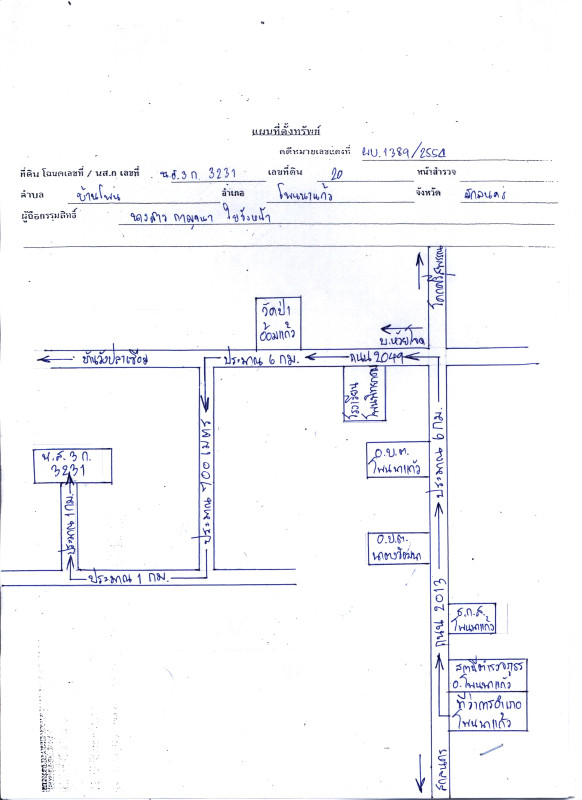 แผนที่ตั้งทรัพย์
คดีหมายเลขแดงที่ ผบ. 1389/2554
ที่ดิน โฉนดเลขที่ / นส.ก เลขที่ น.ส.3 ก. 3231 เลขที่ดิน 20 หน้าสำรวจ
ตำบล บ้านโพน อำเภอ โพนนาแก้ว จังหวัด สกลนคร
ผู้ถือกรรมสิทธิ์ นางสาว กาญจนา
โคกศรีสุพรรณ
วัดป่า
อ้อมแก้ว
บ.ห้วยโจด
บ้านวังปลาเซือม
ประมาณ 6 กม.
ถนน 2049
โรงเรียน
โพนพิทยาคม
น.ส. 3 ก.
3231
ประมาณ 700 เมตร
อ.บ.ต.
โพนนาแก้ว
ประมาณ 6 กม.
ประมาณ 1 กม.
อ.บ.ต.
นาตงวัฒนา
ประมาณ 1 กม.
ถนน 2013
ธ.ก.ส.
โพนนาแก้ว
สถานีตำรวจภูธร
อ.โพนนาแก้ว
ที่ว่าการอำเภอ
โพนนาแก้ว
สกลนคร